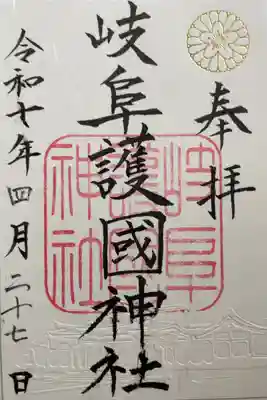 奉拝
岐阜護國神社
岐阜護國神社
令和七年四月二十七日